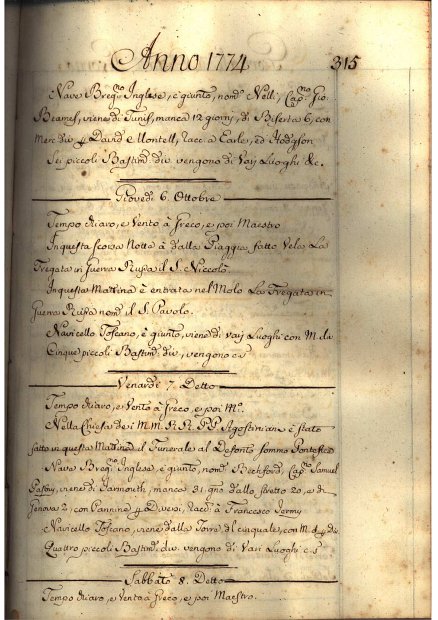 Anno 1774 315
Nave Breg.no Inglese, è giunto, nom.o Nelli, Cap.no Gio.
Beames, viene di Tunis, manca 12 giorni, di Biserta 6, con
Merc. div. p David e Montell, racc. a Earle, ed Hodgson
Sei piccoli Bastim. div. vengono di Varj Luoghi &c.
Giovedi 6. Ottobre
Tempo chiaro, e Vento à Greco, e poi Maestro
In questa scorsa Notte à dalla Piaggia fatto Vela La
Fregata in Guerra Russa il S. Niccolò.
In questa Mattina è entrata nel Molo La Fregata in
Guerra Russa nom. il S. Pavolo.
Navicello Toscano, è giunto, viene di Varj Luoghi con M. da
Cinque piccoli Bastim. div. vengono cs
Venardi 7. Detto
Tempo chiaro, e Vento à Greco, e poi M.o
Nella Chiesa de i M.M. R.R. P.P. Agostiniani è stato
fatto in questa Mattina il Funerale al Defonto Sommo Pontefice
Nave Breg.no Inglese è giunto, nom. Beckford Cap.o Samuel
viene di Yarmouth, manca 31. gno dallo stretto 20, e di
Genova 2, con Pannine p D. versi, racc. à Francesco Jermy
Navicello Toscano, viene dalla Torre del cinquale, con M. div.
Quattro piccoli Bastim. div. vengono di Vari Luoghi cs
Sabbato 8. Detto
Tempo chiaro, e Vento à Greco, e poi Maestro.